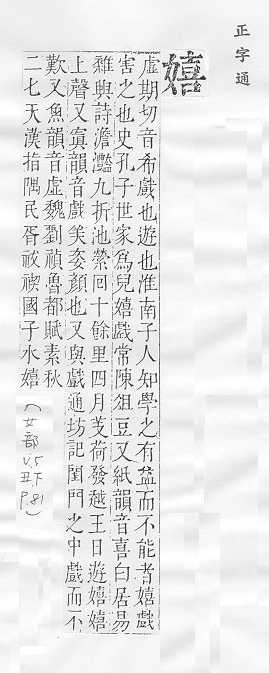 正字通
嬉
虛期切音希戲也遊也淮南子人知學之有益而不能者嬉戲
害之也史孔子世家為兒嬉戲常陳俎豆又紙韻音喜白居易
雜與詩澹灩九折池縈回十餘里四月芰荷發越王日遊嬉嬉
上聲又寘韻音戲美姿顏也又與戲通坊記閨門之中戲而不
歎又魚韻音虛魏劉禎魯都賦素秋
二七天漢指隅民胥祓禊國子水嬉
(女部
V.5
丑下
p.81)